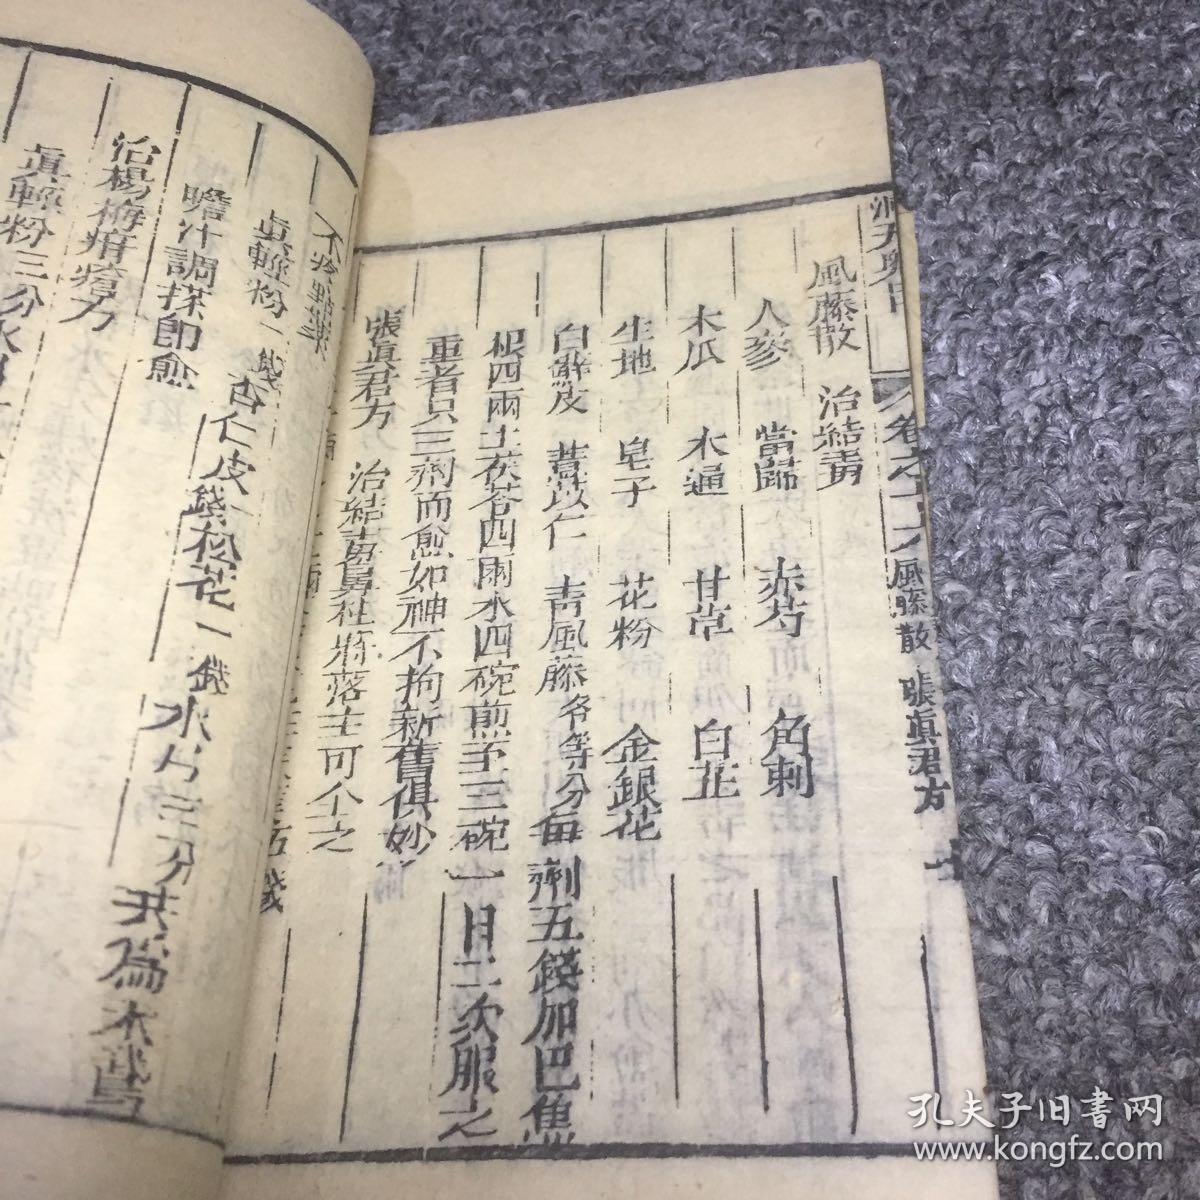 洞天奥旨 卷之十六 風藤散 張眞君方 十
風藤散 治結毒
人蔘 當歸 赤芍 角刺
木瓜 木通 甘草 白芷
生地 皂子 花粉 金銀花
白蘚皮 薏苡仁 青風藤各等分每劑五錢加巴蕉
根四兩土茯苓四兩水四碗煎至三碗一日二次服之
重者只三劑而愈如神不拘新舊俱妙
張眞君方 治結毒鼻柱將落主可个之
眞輕粉一錢杏仁皮錢松花一錢冰片三分共為末
膽汁調搽即愈
治楊梅疳瘡方
眞輕粉三分
孔夫子旧書网
www.kongfz.com